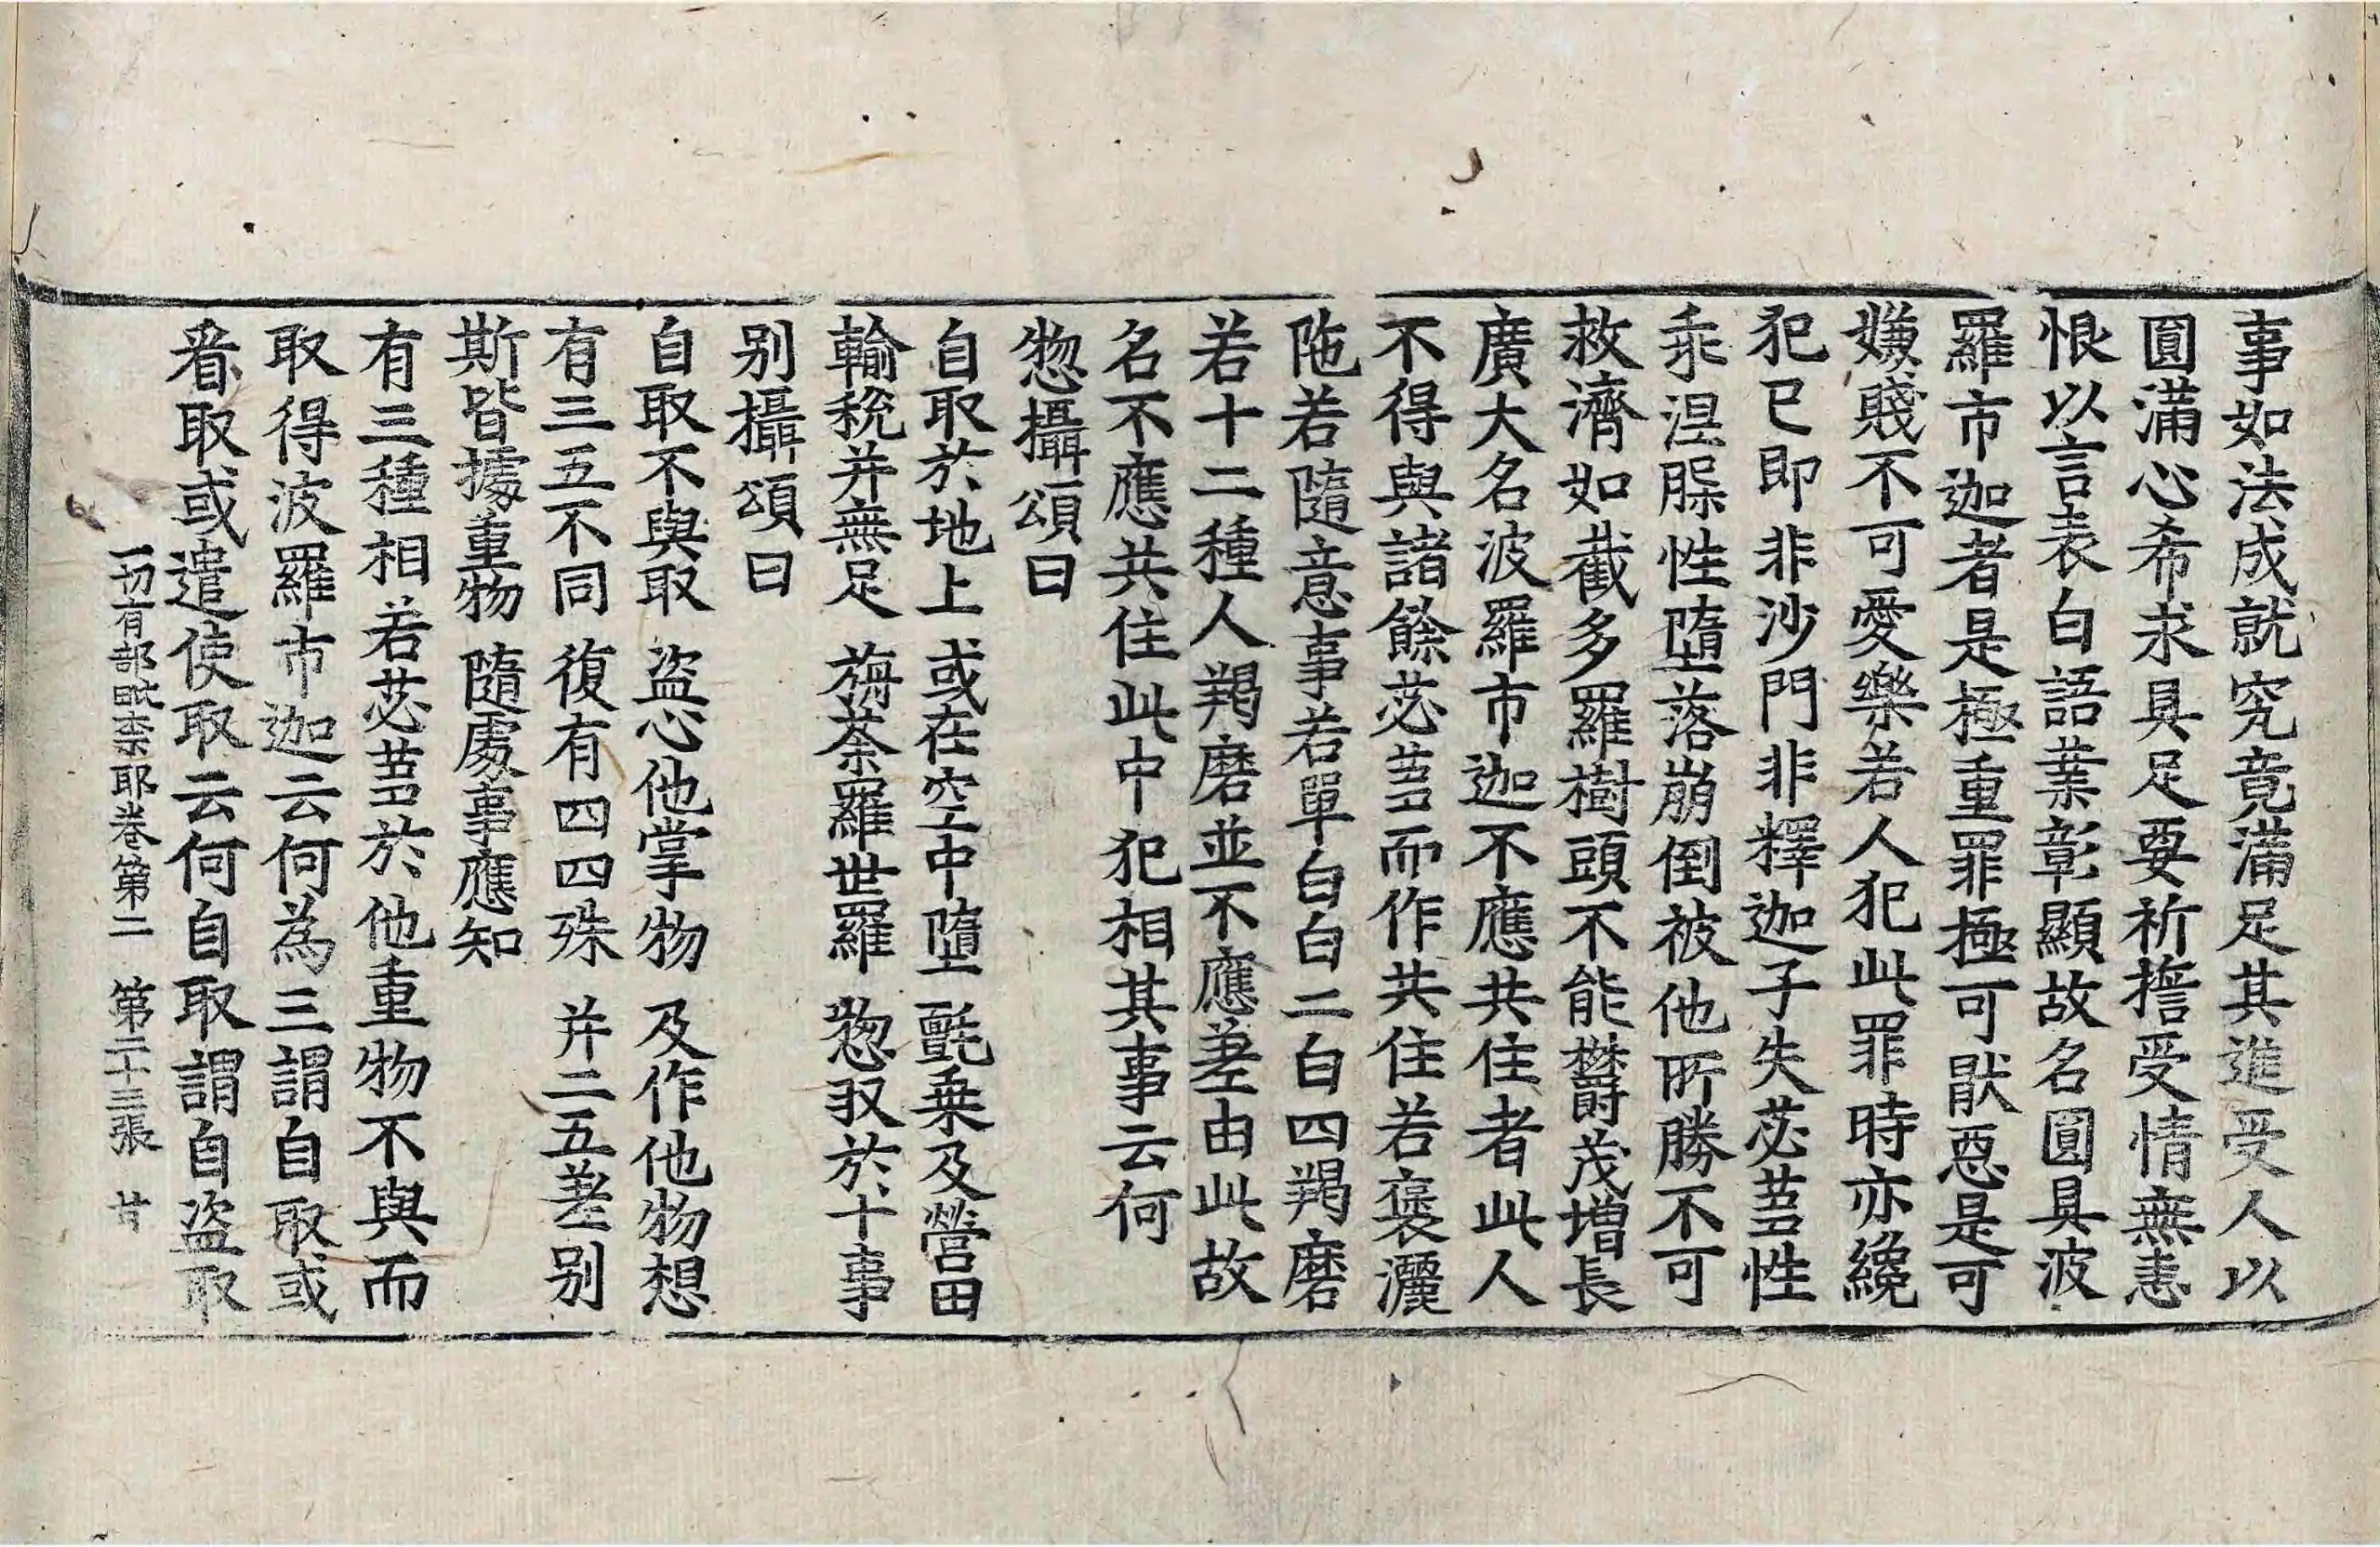 事如法成就究竟滿足其進受人以
圓滿心希求具足要祈擔受情無恚
恨以言表白語業彰顯故名圓具波
羅市迦者是極重罪極可猒惡是可
嫌賤不可愛樂若人犯此罪時亦纔
犯已即非沙門非釋迦子失苾蒭性
乖涅脲性墮落崩倒被他所勝不可
救濟如截多羅樹頭不能欝茂增長
廣大名波羅市迦不應共住者此人
不得與諸餘苾蒭而作共住若褒灑
陁若隨意事若單白白二白四羯磨
若十二種人羯磨並不應差由此故
名不應共住此中犯相其事云何
惣攝頌曰
自取於地上 或在空中墮 氈乗及營田
輸稅并無足 旃荼羅世羅 惣収於十事
别攝頌曰
自取不與取 盜心他掌物 及作他物想
有三五不同 復有四四殊 并二五差别
斯皆據重物 隨處事應知
有三種相若苾蒭於他重物不與而
取得波羅市迦云何為三謂自取或
看取或遣使取云何自取謂自盜取
一切有部毗柰耶卷第二 第二十三張 廿